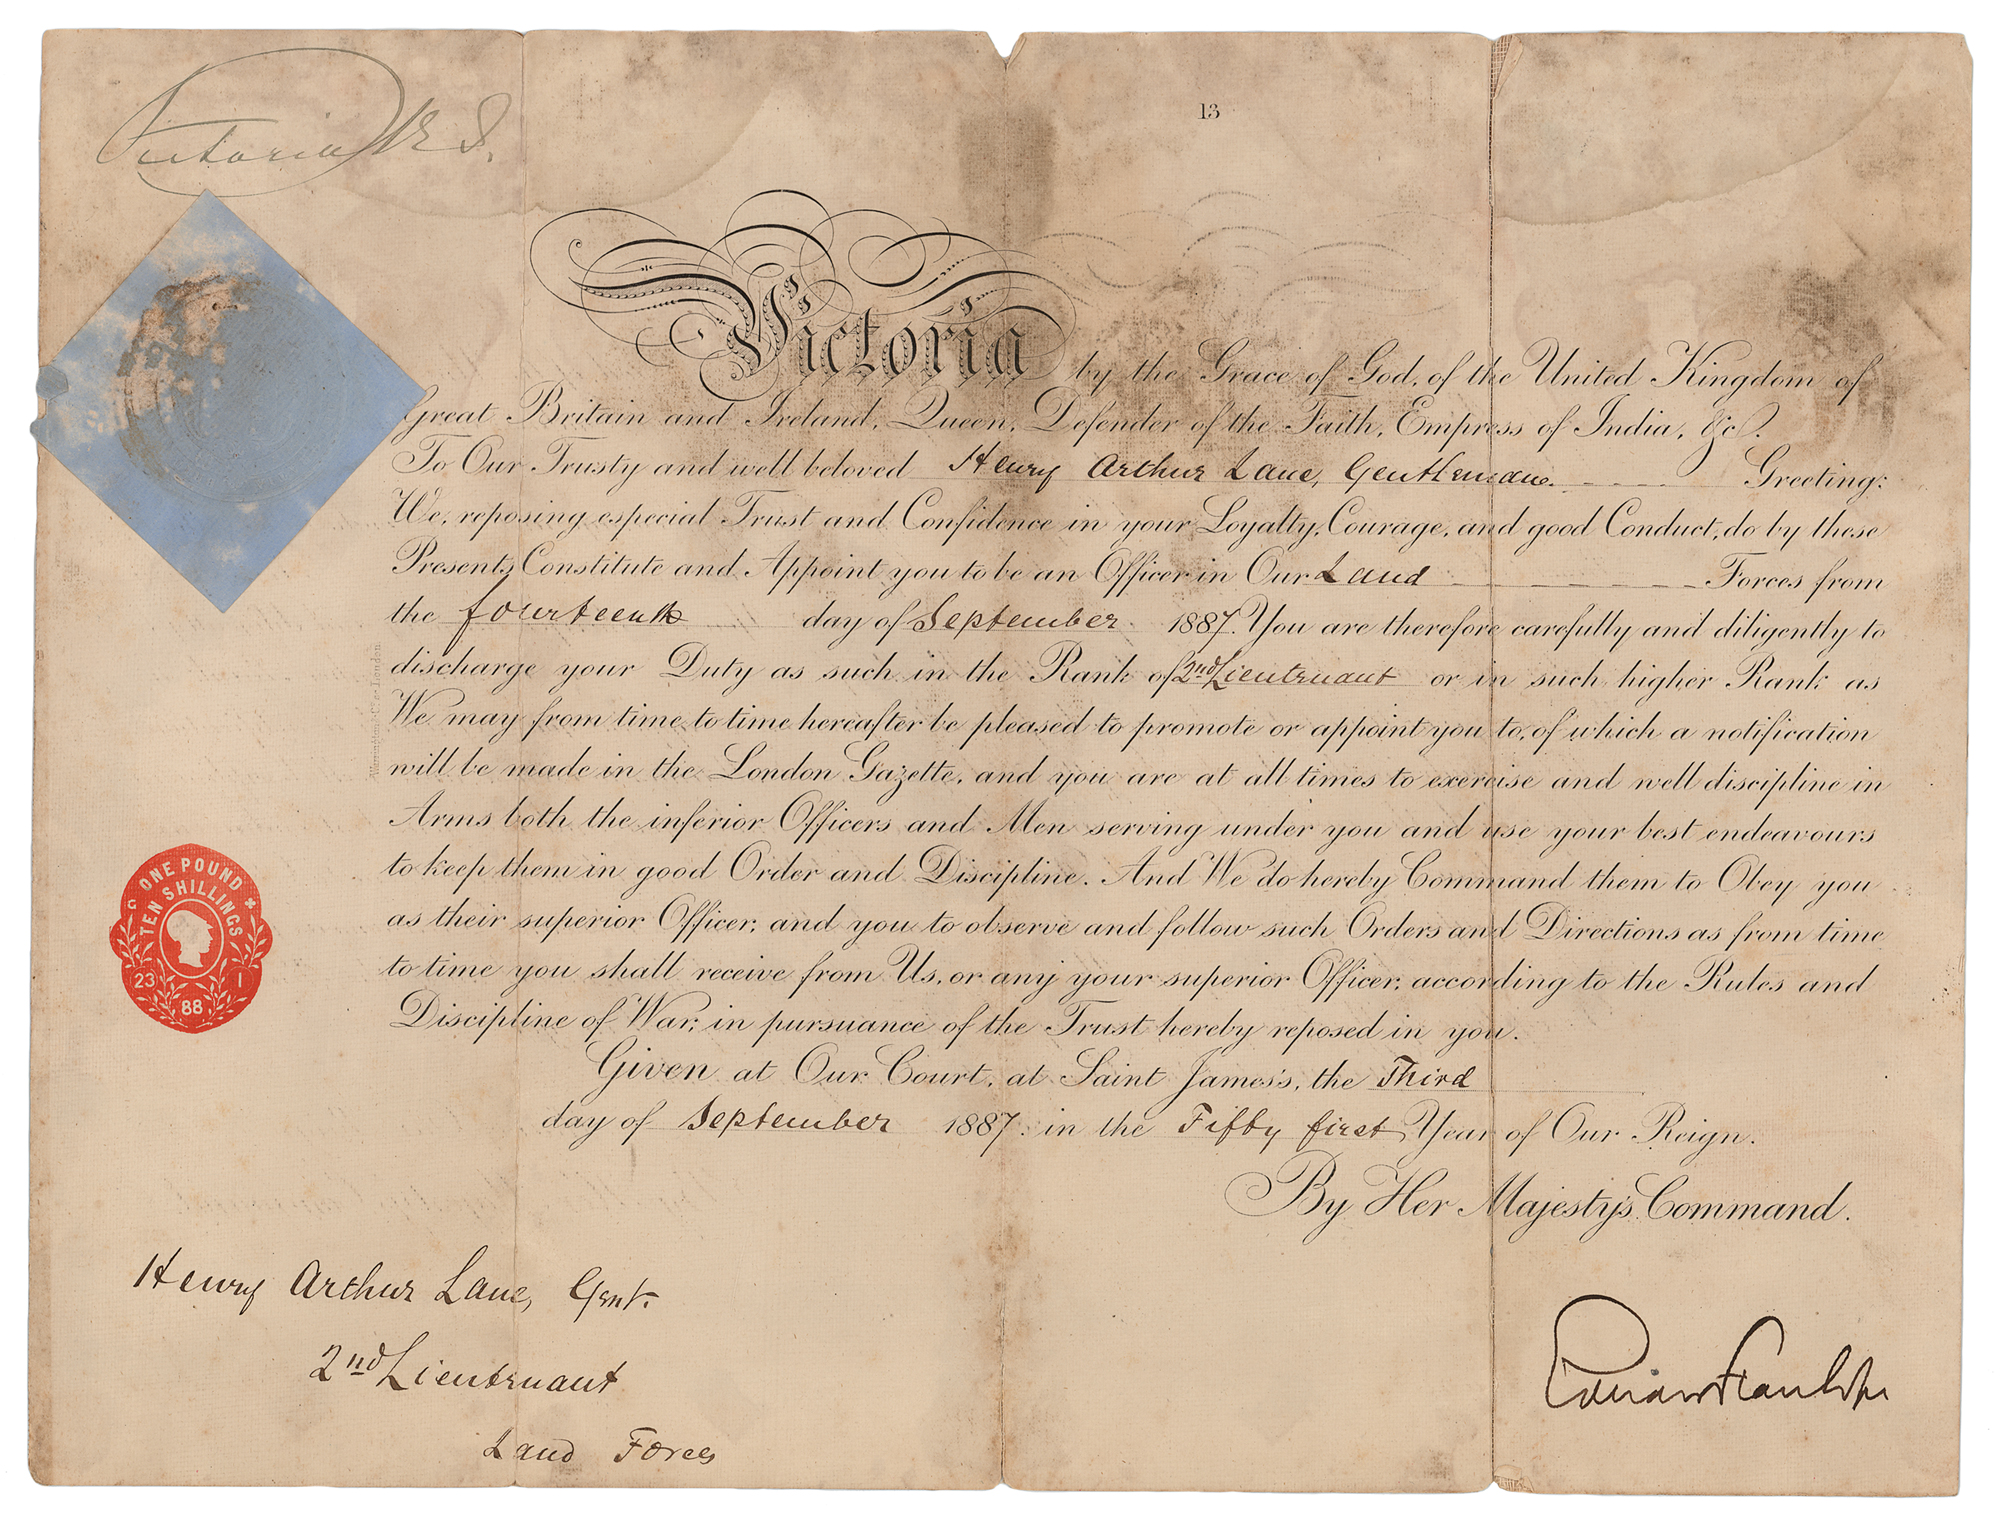 Victoria R I.
13
Victoria by the Grace of God, of the United Kingdom of
Great Britain and Ireland, Queen, Defender of the Faith, Empress of India, &c.
To Our Trusty and well beloved Henry Arthur Lane, Gentleman. Greeting:
We, reposing especial Trust and Confidence in your Loyalty, Courage, and good Conduct, do by these
Presents Constitute and Appoint you to be an Officer in Our Land Forces from
the fourteenth day of September 1887. You are therefore carefully and diligently to
discharge your Duty as such in the Rank of 2nd Lieutenant or in such higher Rank as
We may from time to time hereafter be pleased to promote or appoint you to, of which a notification
will be made in the London Gazette, and you are at all times to exercise and well discipline in
Arms both the inferior Officers and Men serving under you and use your best endeavours
to keep them in good Order and Discipline. And We do hereby Command them to Obey you
as their superior Officer, and you to observe and follow such Orders and Directions as from time
to time you shall receive from Us, or any your superior Officer, according to the Rules and
Discipline of War, in pursuance of the Trust hereby reposed in you.
Given at Our Court, at Saint James's, the Third
day of September 1887. in the Fifty first Year of Our Reign.
By Her Majesty's Command.
ONE POUND
TEN SHILLINGS
23 1
88
Henry Arthur Lane, Gent.
2nd Lieutenant
Land Forces